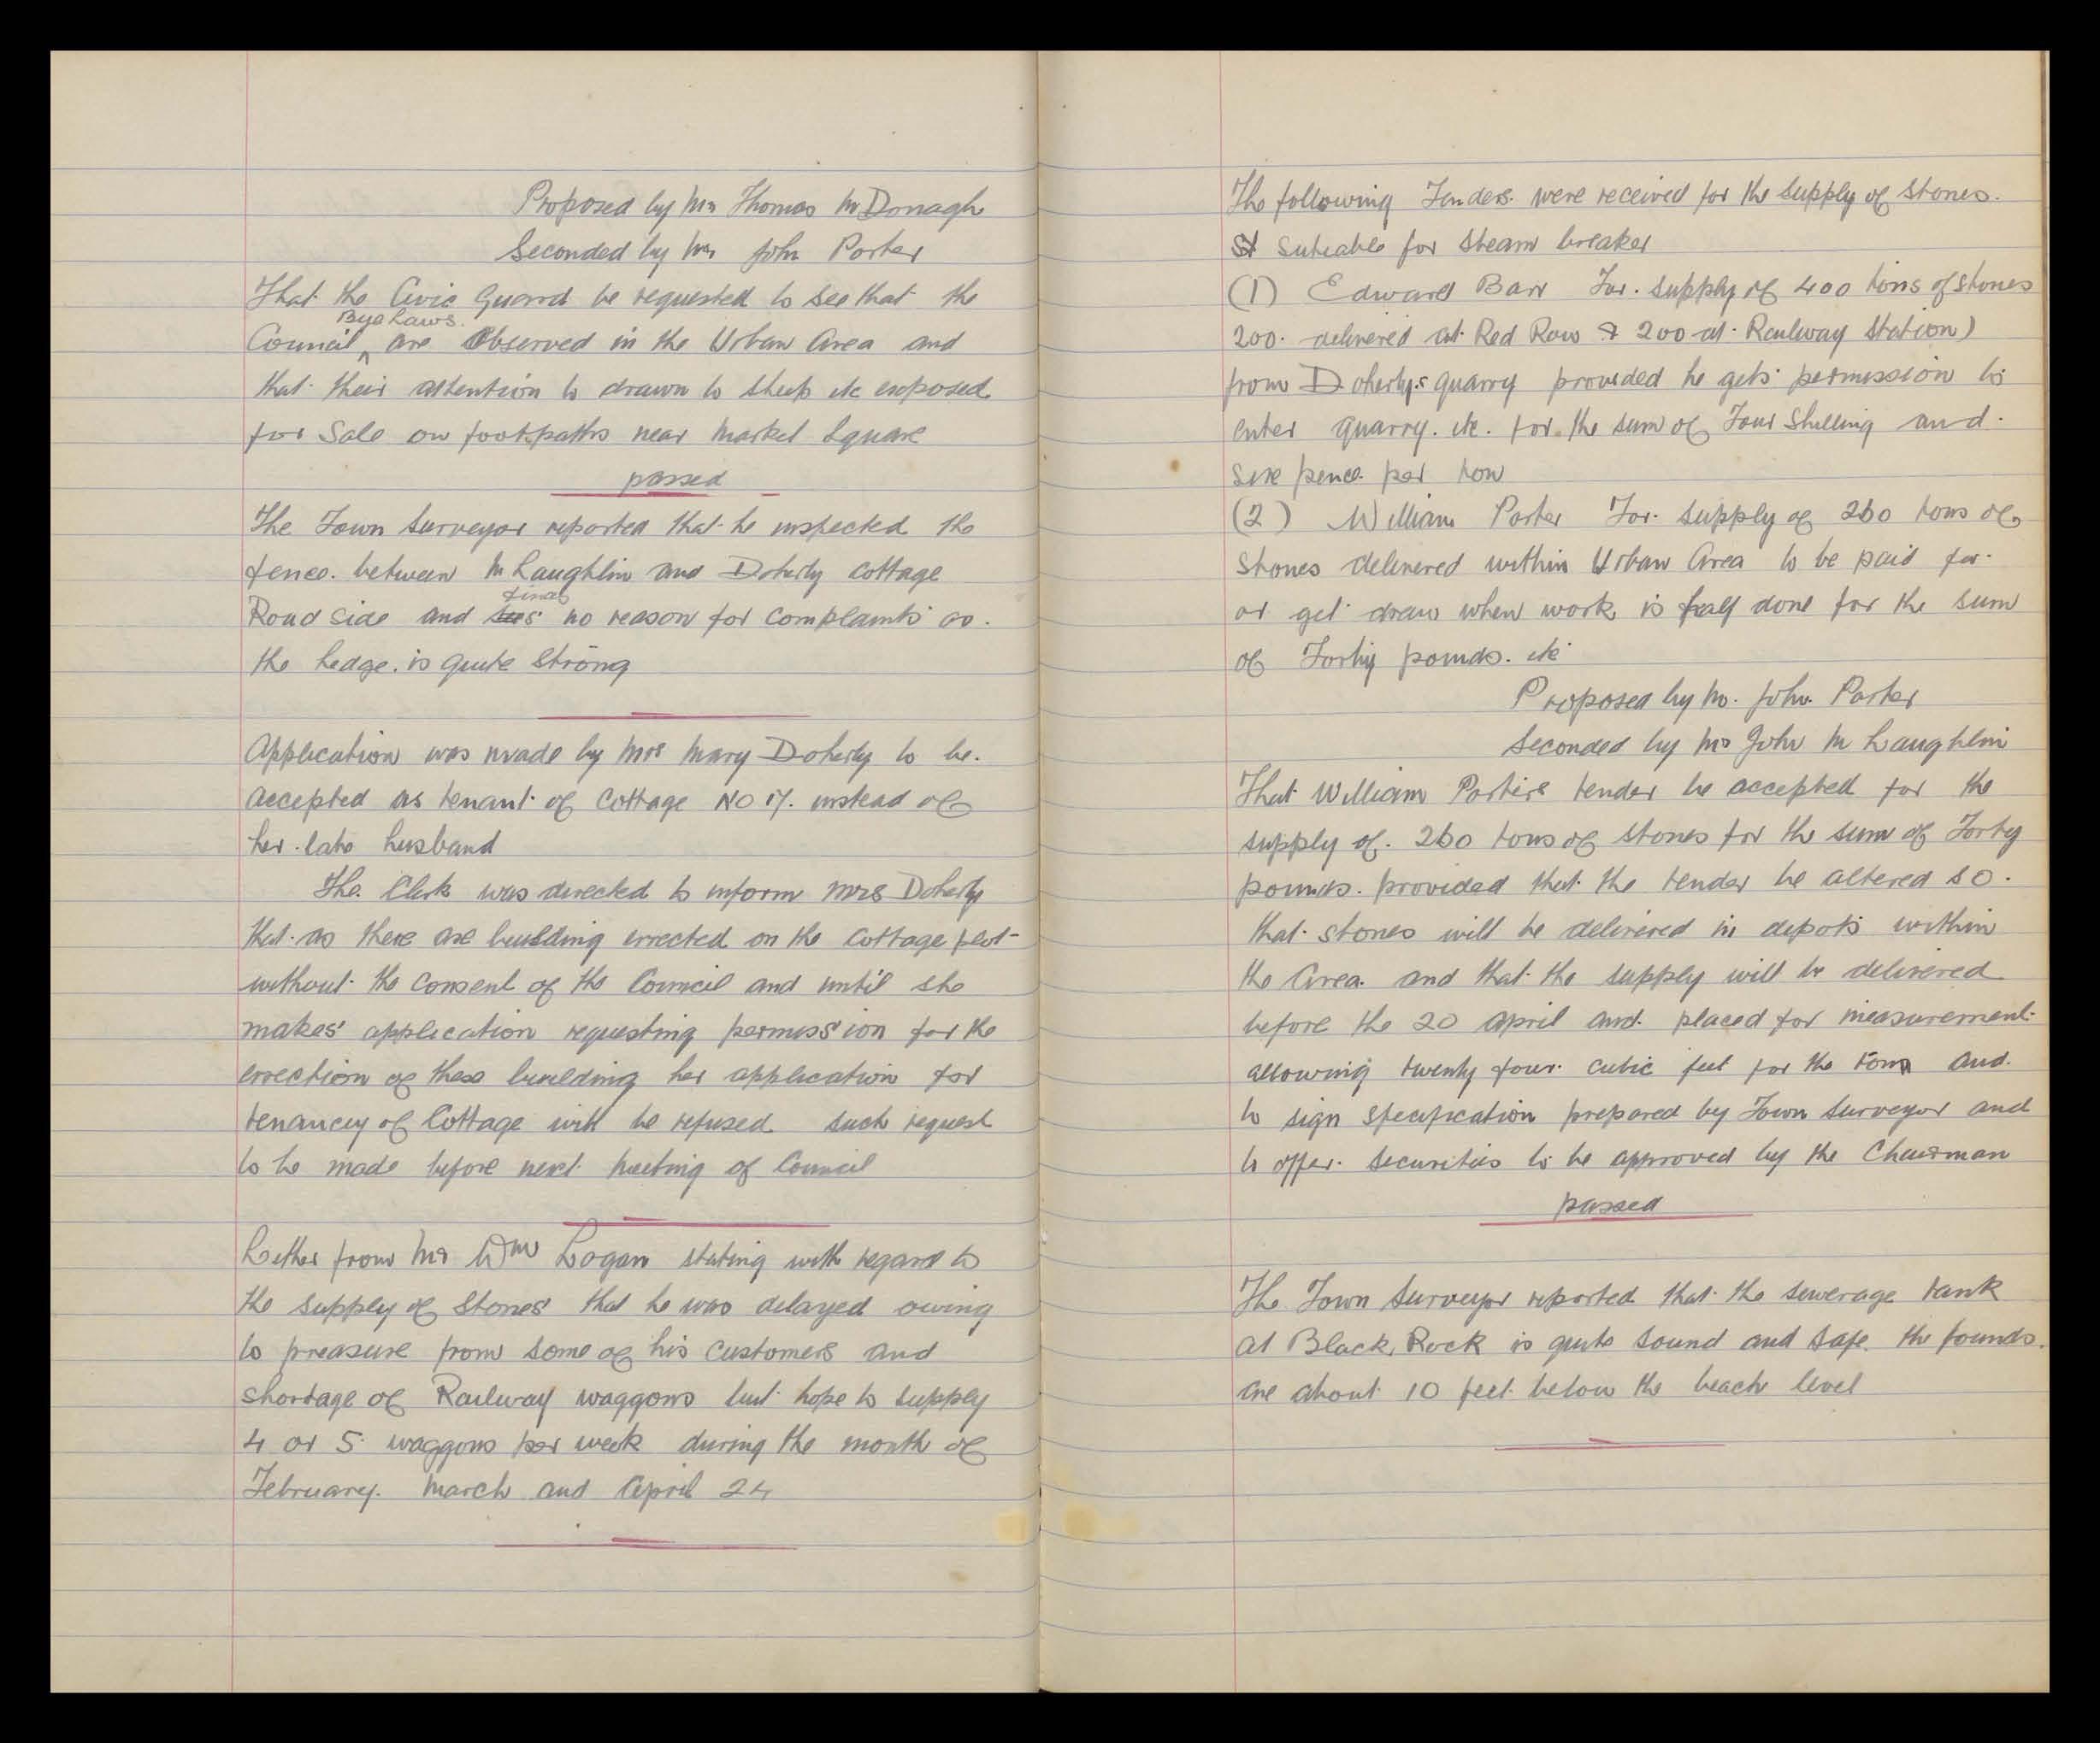 Proposed by Mr Thomas McDonagh
Seconded by Mr John Porter
That the Civic Guard be requested to see that the
Bye Laws.
Council ^ are Observed in the Urban Area and
that their attention to drawn to sheep etc exposed
for Sale on footpaths near Market Square
passed
The Town Surveyor reported that he inspected the
fence. between McLaughlin and Doherty Cottage
finds
Road side and sees no reason for complaints as.
the hedge. is quite Strong
Application was made by Mrs Mary Doherty to be.
accepted as tenant of Cottage No 17. instead of
her. late husband
The. Clerk was directed to inform Mrs Doherty
that. as there are building errected on the Cottage plot
without the consent of the Council and until she
makes application requesting permission for the
errection of these building her application for
tenancey of Cottage will be refused such request
to be made before next meeting of Council
Letter from Mr Wm Logan stating with regard to
the supply of Stones that he was delayed owing
to preasure from some of his customers and
shortage of Railway waggons but hope to supply
4 or 5 waggons per week during the month of
February. March and April 24
The following Tenders. were received for the supply of stones.
St suteable for steam breaker
(1) Edward Barr For. supply of 400 tons of stones
200. delivered at Red Row & 200 at Railway Station)
from Doherty's quarry provided he gets permission to
enter quarry. etc. for. the sum of Four Shilling and.
six pence. per ton
(2) William Porter For. supply of 260 tons of
stones delivered within Urban Area to be paid for
or get draw when work is half done for the sum
of Forty pounds. etc
Proposed by Mr. John Porter
Seconded by Mr John McLaughlin
That William Porters tender be accepted for the
supply of. 260 tons of stones for the sum of Forty
pounds. provided that the tender be altered so.
that stones will be delivered in depots within
the Area. and that the supply will be delivered
before the 20 April and. placed for measurement.
allowing twenty four cubic feet for the ton and.
to sign specification prepared by Town Surveyor and
to offer. securities to be approved by the Chairman
passed
The Town Surveyor reported that the sewerage tank
at Black Rock is quite sound and safe. the founds.
are about 10 feet below the beach level